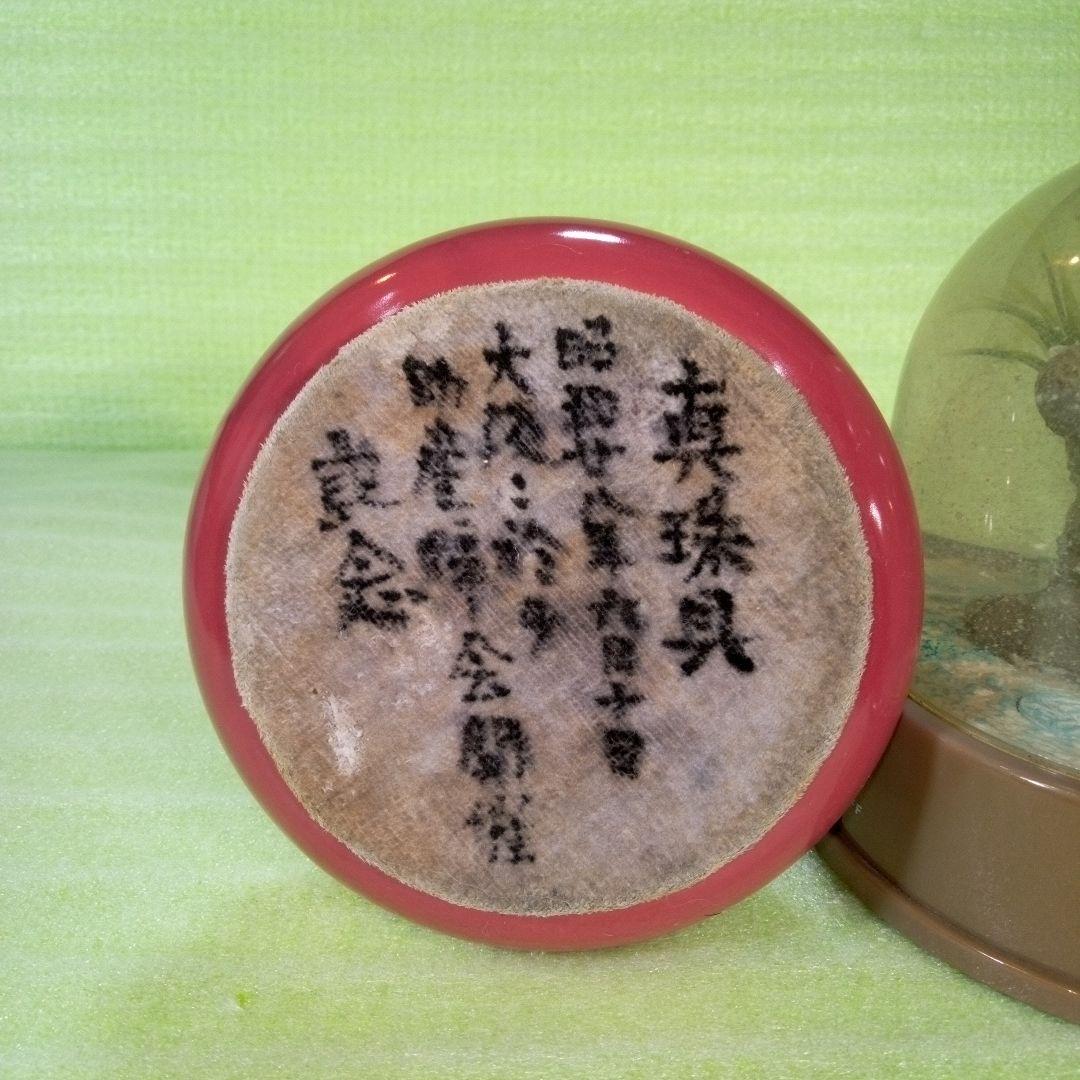 真珠具
昭和廿八年六月十日
大阪ニ於テ
助産師会開催
記念